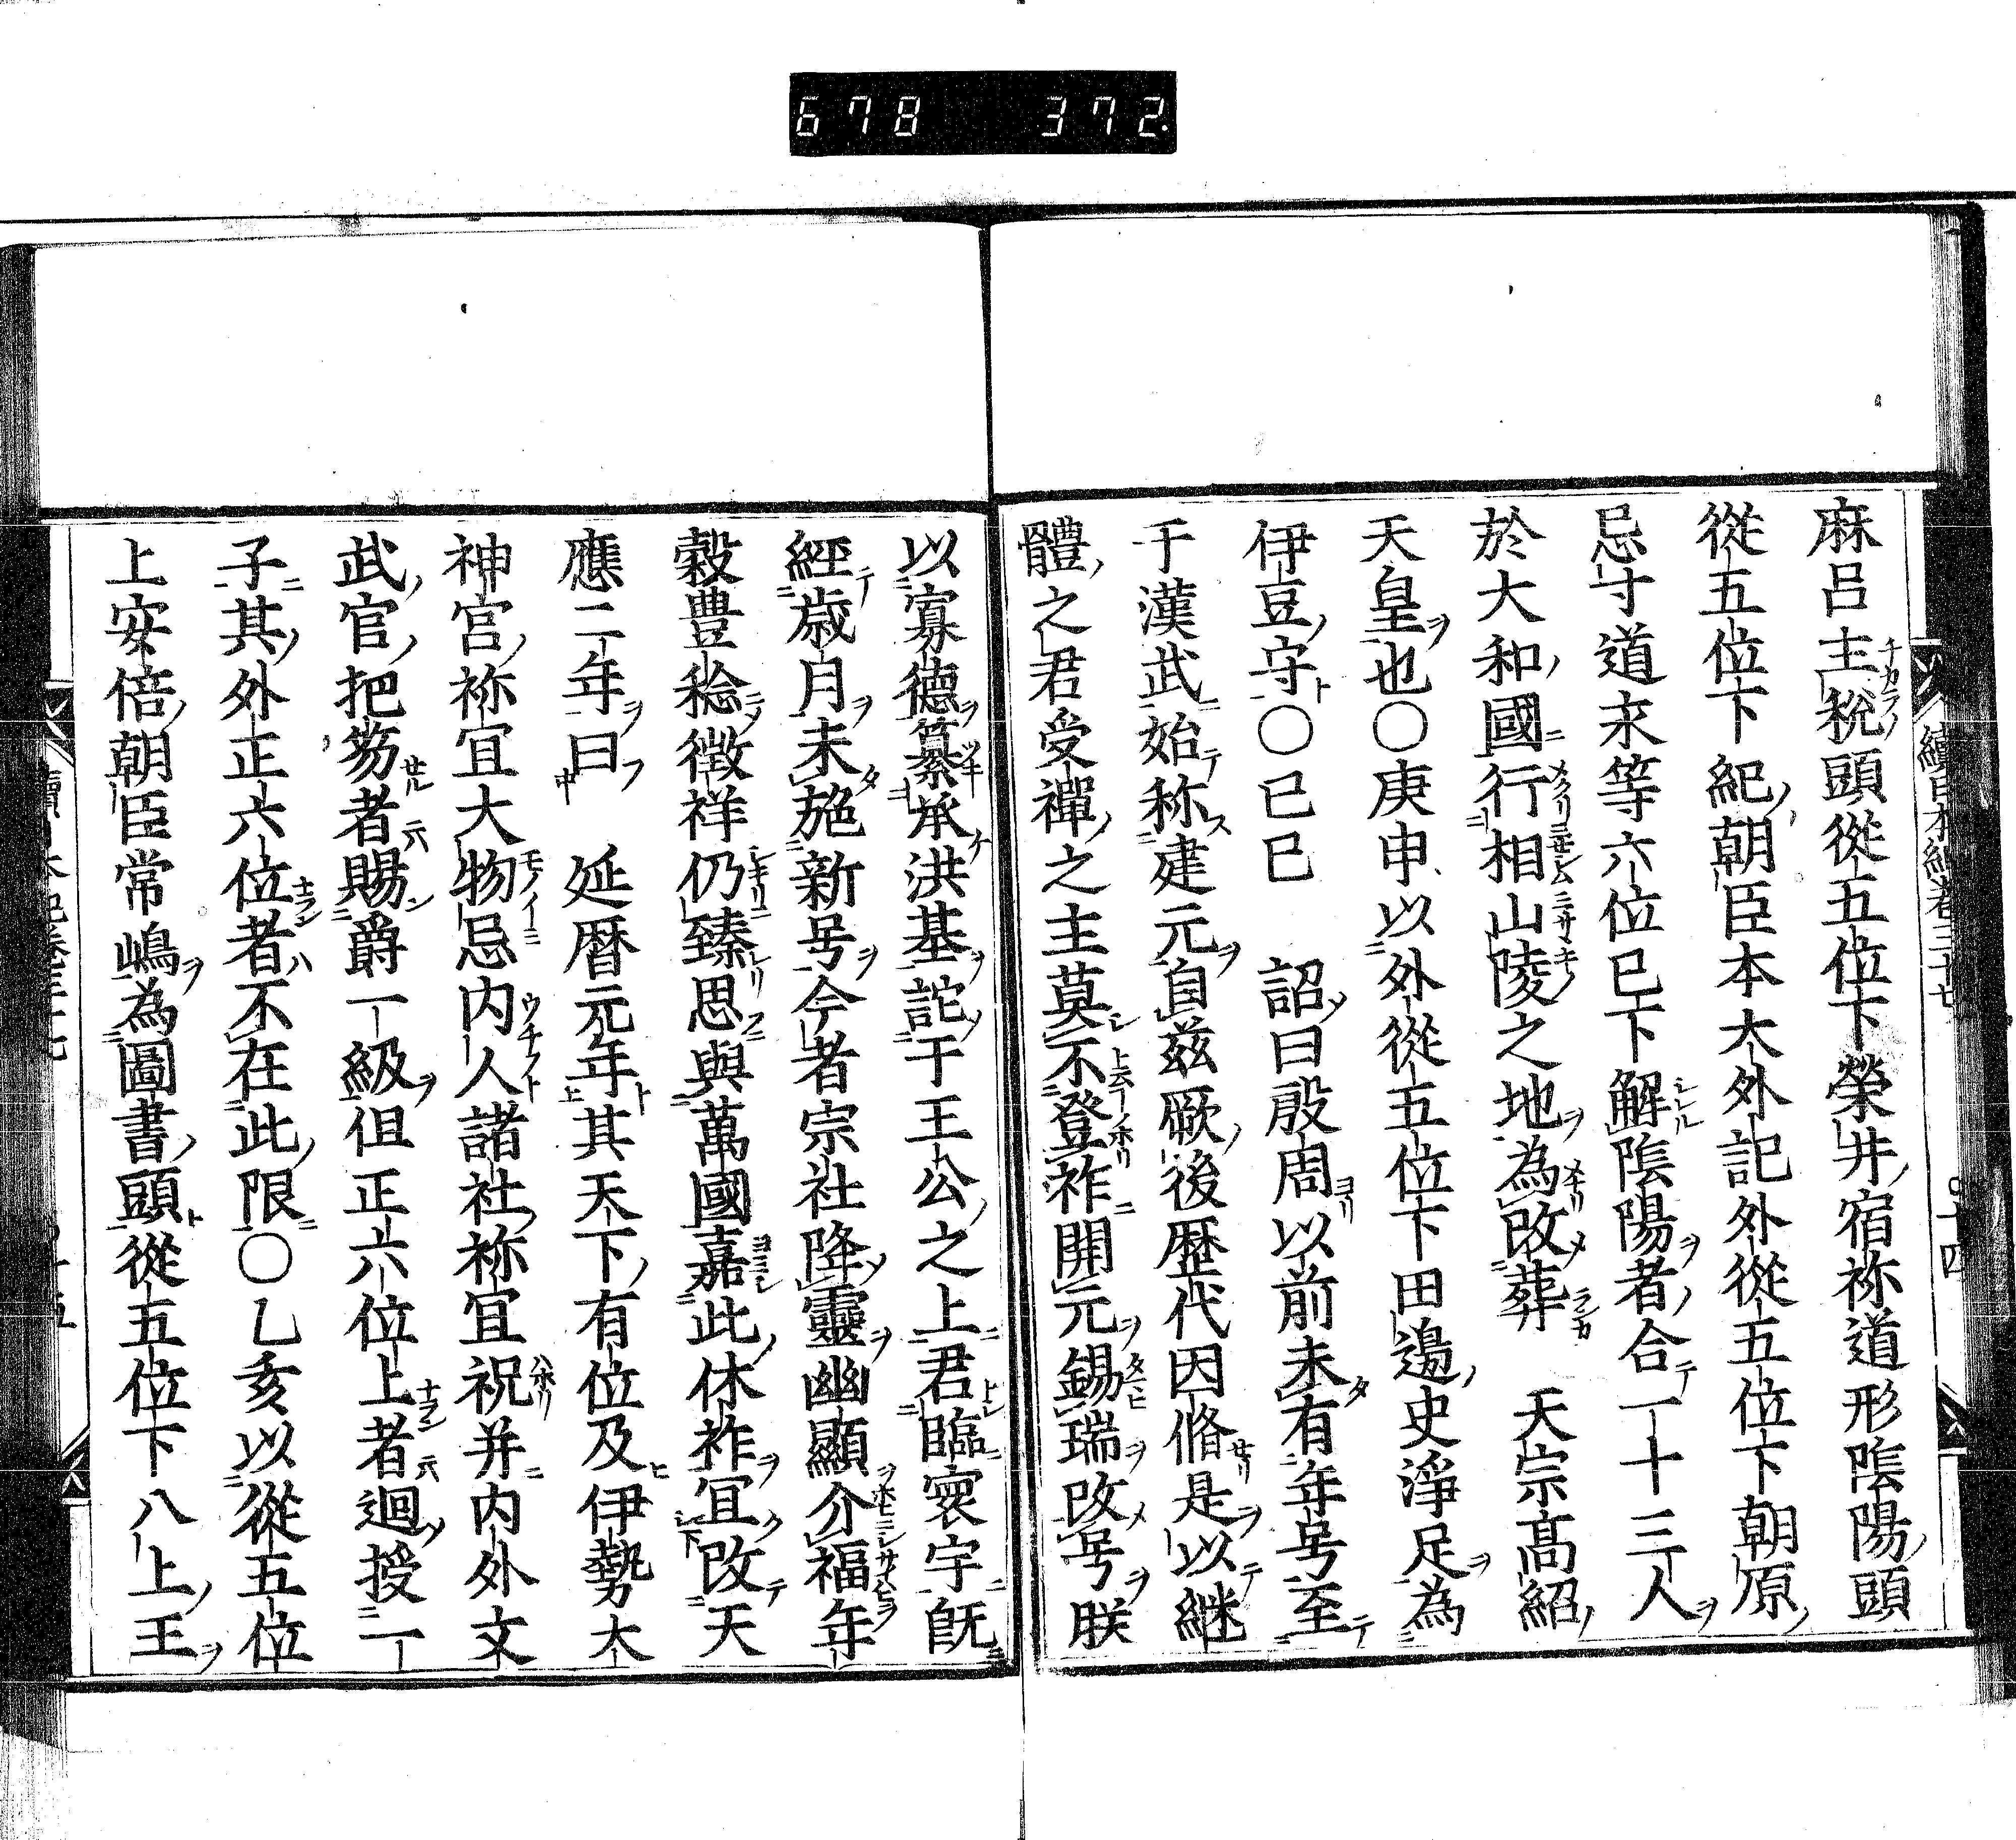 678 372
麻呂主税頭從五位下榮井宿祢道形陰陽頭
從五位下紀朝臣本大外記外從五位下朝原
忌寸道永等六位已下解陰陽者合一十三人
於大和國行相山陵之地為改葬 天宗高紹
天皇也○庚申以外從五位下田邊史淨足為
伊豆守○己巳 詔曰殷周以前未有年号至
于漢武始称建元自兹厥後歷代因脩是以継
體之君受禪之主莫不登祚開元錫瑞改号朕
以寡德纂承洪基詑于王公之上君臨寰宇既
經歳月未施新号今者宗社降靈幽顯介福年
穀豊稔徴祥仍臻思與萬國嘉此休祚冝改天
應二年曰 延暦元年其天下有位及伊勢大
神宮祢冝大物忌内人諸社祢冝祝并内外文
武官把笏者賜爵一級但正六位上者迴授一
子其外正六位者不在此限○乙亥以從五位
上安倍朝臣常嶋為圖書頭從五位下八上王